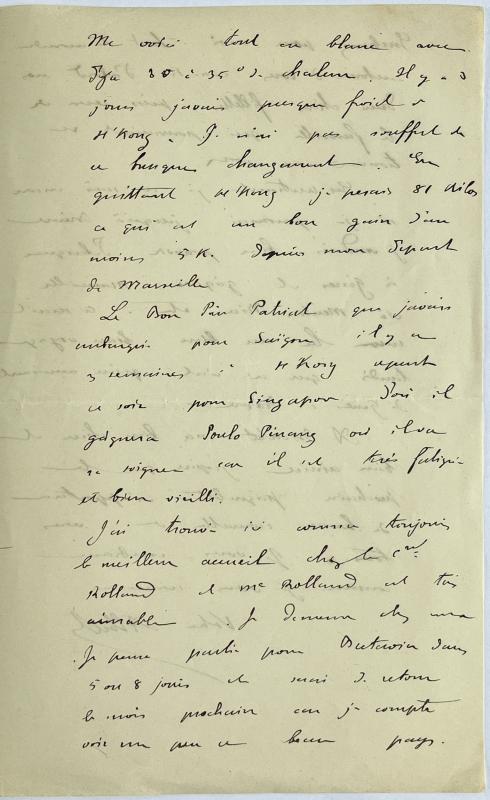 Me voici tout en blanc avec
déjà 30 à 35° de chaleur. Il y a 3
jours j'avais presque froid à
H'Kong. Je n'ai pas souffert de
ce brusque changement. En
quittant H'Kong je pesais 81 kilos
ce qui est un bon gain d'au
moins 5 K. depuis mon départ
de Marseille
Le Bon Père Patriat que j'avais
embarqué pour Saïgon il y a
3 semaines à H'Kong repart
ce soir pour Singapor d'où il
gagnera Poulo Pinang où il va
se soigner car il est très fatigué
et bien vieilli.
J'ai trouvé ici comme toujours
le meilleur accueil chez le Cnel
Rolland et Me Rolland est très
aimable. Je demeure chez eux
Je pense partir pour Batavia dans
5 ou 8 jours et serai de retour
le mois prochain car je compte
voir un peu ce beau pays.